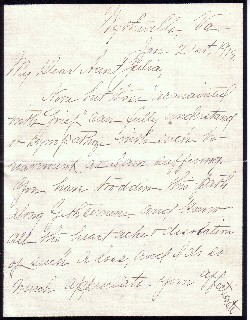 Wytheville, Va.
Jan. 21st
My Dear Aunt Julia,
None but one "acquainted
with grief" can fully understand
or sympathize with such be-
reavement as I am suffering.
You have trodden this path
along Gethsemane and know
all the heart ache & desolation
of such a loss, and I do so
much appreciate your